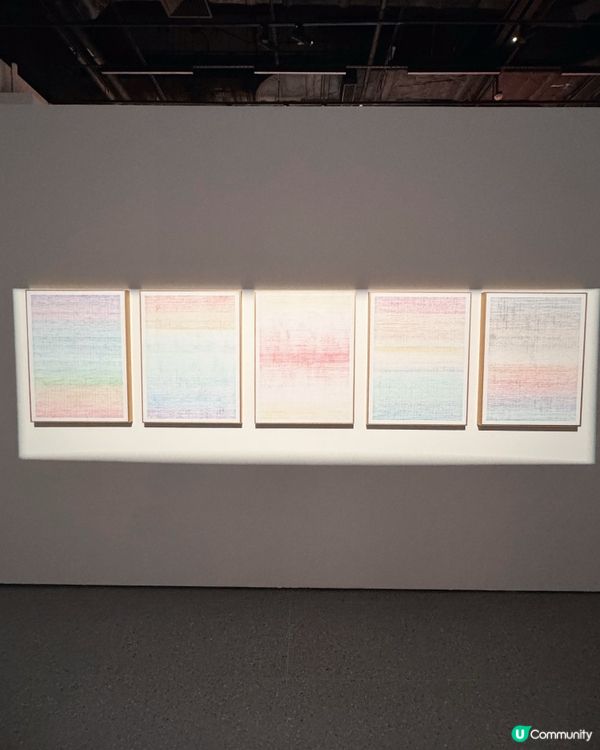 U Community